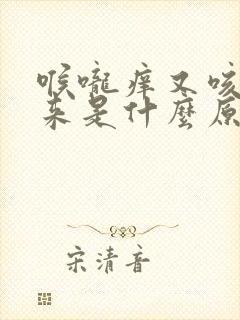 喉嚨痒又咳
来是什麼原
宋清音